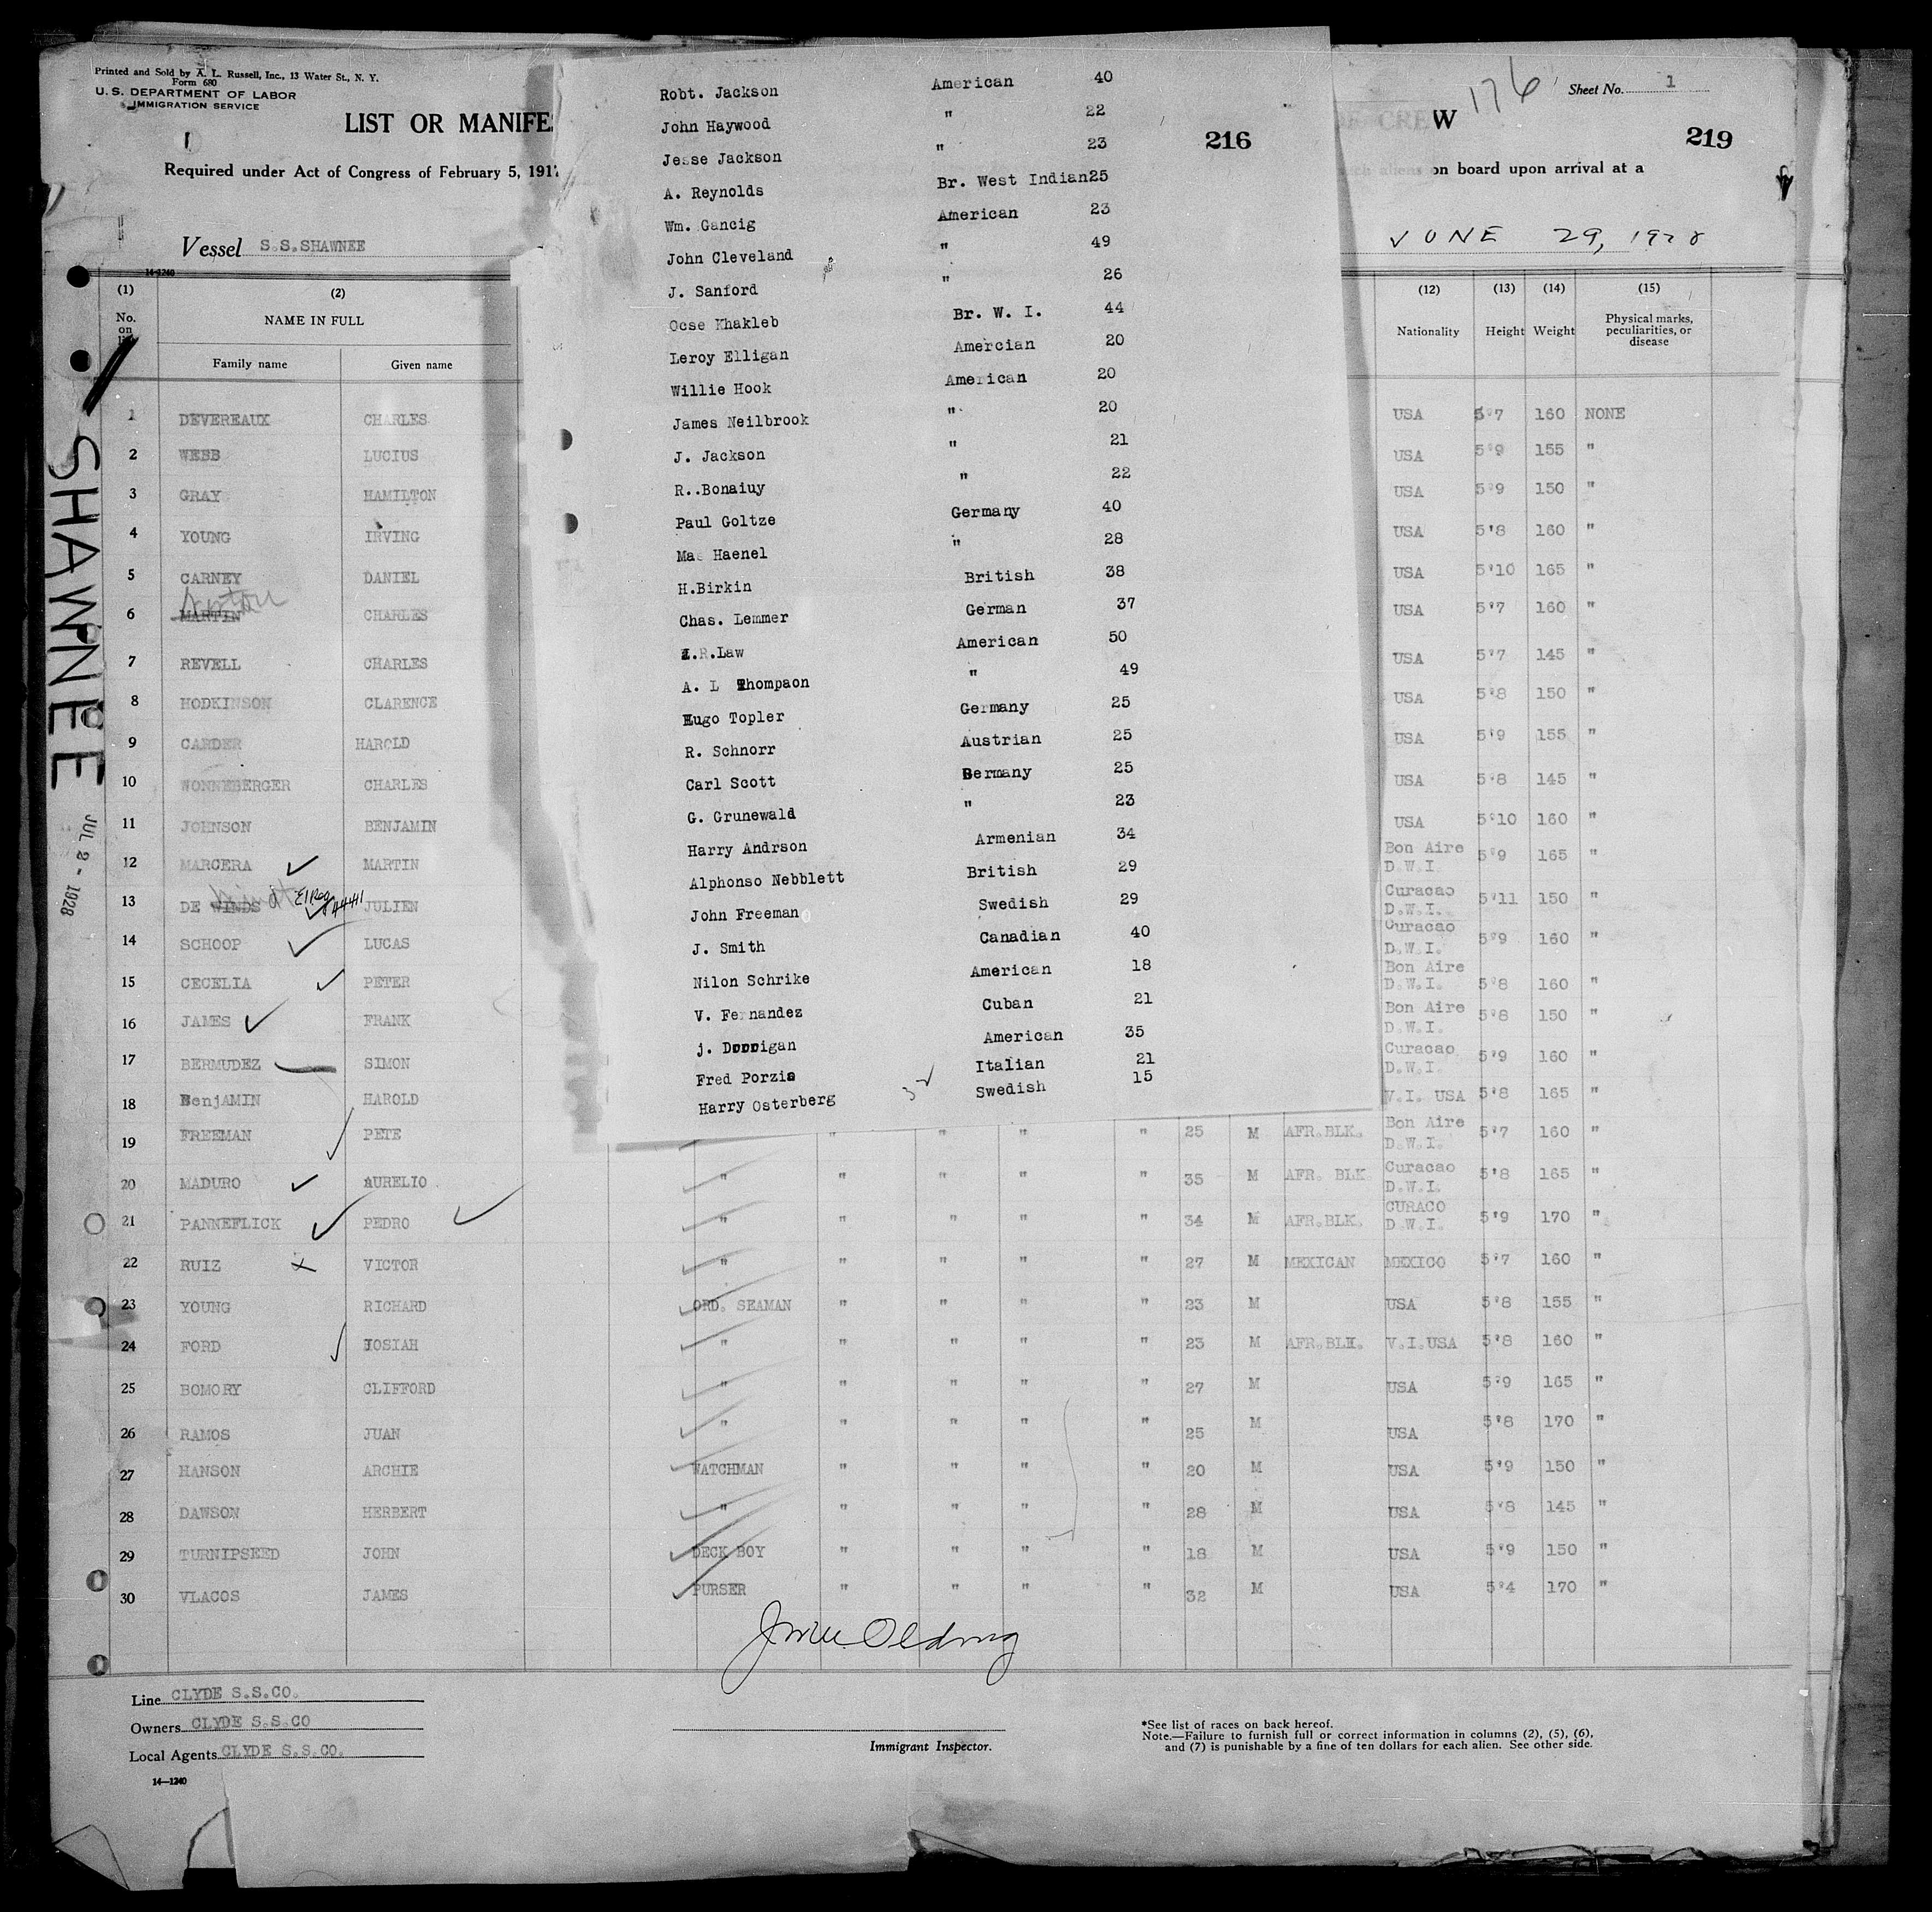 Printed and Sold by A. L. Russell, Inc., 13 Water St., N. Y.
Form 680
U. S. DEPARTMENT OF LABOR
IMMIGRATION SERVICE
LIST OR MANIFE
Required under Act of Congress of February 5, 1917
Vessel S.S.SHAWNEE
14-1240
W 176 Sheet No. 1
219
on board upon arrival at a
JUNE 29, 1928
SHAWNEE
JUL 2 - 1928
216
Robt. Jackson American 40
John Haywood " 22
Jesse Jackson " 23
A. Reynolds Br. West Indian25
Wm. Gancig American 23
John Cleveland " 49
J. Sanford " 26
Ocse Khakleb Br. W. I. 44
Leroy Elligan Amercian 20
Willie Hook American 20
James Neilbrook " 20
J. Jackson " 21
R..Bonaiuy " 22
Paul Goltze Germany 40
Mas Haenel " 28
H.Birkin British 38
Chas. Lemmer German 37
R.Law American 50
A. L Thompaon " 49
Hugo Topler Germany 25
R. Schnorr Austrian 25
Carl Scott Germany 25
G. Grunewald " 23
Harry Andrson Armenian 34
Alphonso Nebblett British 29
John Freeman Swedish 29
J. Smith Canadian 40
Nilon Schrike American 18
V. Fernandez Cuban 21
j. Dorrigan American 35
Fred Porzia Italian 21
Harry Osterberg Swedish 15
(1) (2) (12) (13) (14) (15)
No. on NAME IN FULL Nationality Height Weight Physical marks, peculiarities, or disease
Family name Given name
1 DEVEREAUX CHARLES USA 5'7 160 NONE
2 WEBB LUCIUS USA 5'9 155 "
3 GRAY HAMILTON USA 5'9 150 "
4 YOUNG IRVING USA 5'8 160 "
5 CARNEY DANIEL USA 5'10 165 "
6 MARTIN CHARLES USA 5'7 160 "
7 REVELL CHARLES USA 5'7 145 "
8 HODKINSON CLARENCE USA 5'8 150 "
9 CARDER HAROLD USA 5'9 155 "
10 WONNEBERGER CHARLES USA 5'8 145 "
11 JOHNSON BENJAMIN USA 5'10 160 "
12 MARCERA MARTIN Bon Aire D.W.I. 5'9 165 "
13 DE WINDS JULIEN Curacao D.W.I. 5'11 150 "
14 SCHOOP LUCAS Curacao D.W.I. 5'9 160 "
15 CECELIA PETER Bon Aire D.W.I. 5'8 160 "
16 JAMES FRANK Bon Aire D.W.I. 5'8 150 "
17 BERMUDEZ SIMON Curacao D.W.I. 5'9 160 "
18 BenjAMIN HAROLD V.I. USA 5'8 165 "
19 FREEMAN PETE " " " " 25 M AFR.BLK. Bon Aire D.W.I. 5'7 160 "
20 MADURO AURELIO " " " " " 35 M AFR. BLK Curacao D.W.I. 5'8 165 "
21 PANNEFLICK PEDRO " " " " " 34 M AFR.BLK. CURACO D.W.I. 5'9 170 "
22 RUIZ VICTOR " " " " " 27 M MEXICAN MEXICO 5'7 160 "
23 YOUNG RICHARD ORD. SEAMAN " " " " 23 M USA 5'8 155 "
24 FORD JOSIAH " " " " " 23 M AFR.BLK. V.I.USA 5'8 160 "
25 BOMORY CLIFFORD " " " " " 27 M USA 5'9 165 "
26 RAMOS JUAN " " " " " 25 M USA 5'8 170 "
27 HANSON ARCHIE WATCHMAN " " " " 20 M USA 5'9 150 "
28 DAWSON HERBERT " " " " " 28 M USA 5'8 145 "
29 TURNIPSEED JOHN DECK BOY " " " " 18 M USA 5'9 150 "
30 VLACOS JAMES PURSER " " " " 32 M USA 5'4 170 "
Line CLYDE S.S.CO.
Owners CLYDE S.S.CO
Local Agents CLYDE S.S.CO.
14—1240
Immigrant Inspector.
*See list of races on back hereof.
Note.—Failure to furnish full or correct information in columns (2), (5), (6),
and (7) is punishable by a fine of ten dollars for each alien. See other side.